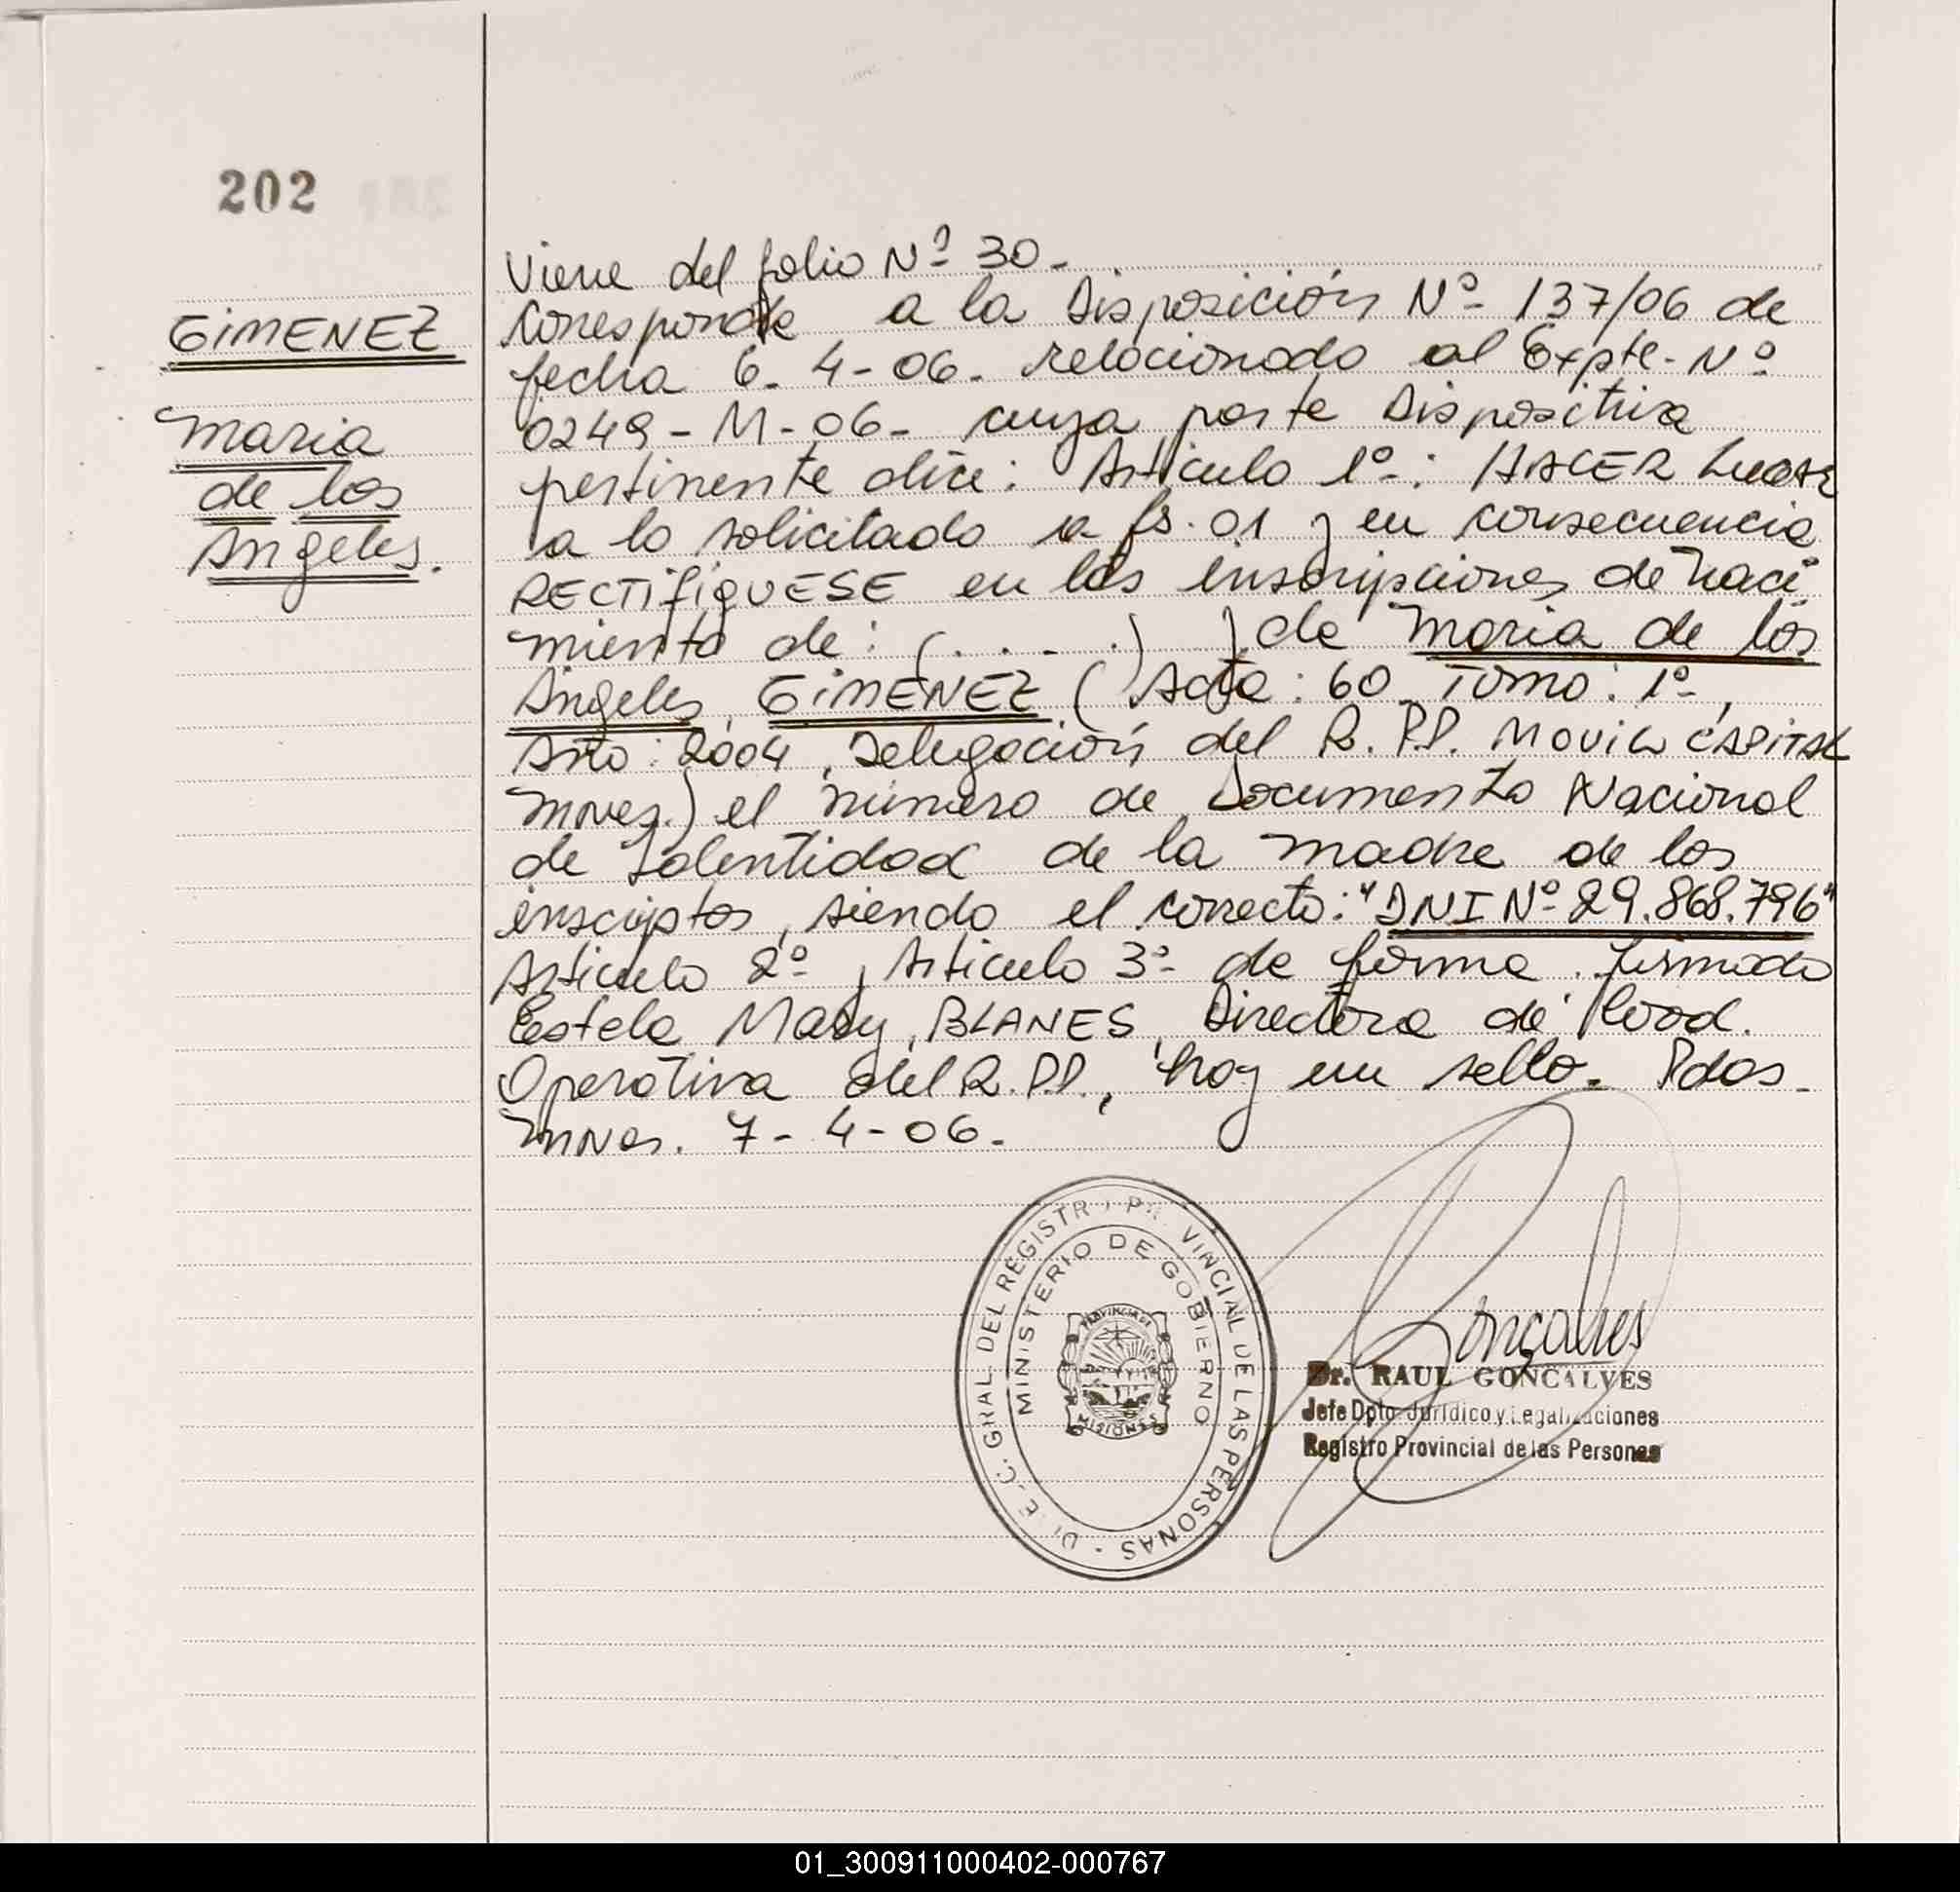 202
GIMENEZ
Maria
de los
Angeles.
Viene del folio Nº 30-
Corresponde a la Disposición Nº 137/06 de
fecha 6-4-06- relacionado al Expte-Nº
0249-M-06- cuya parte Dispositiva
pertinente dice: Artículo 1º-: HACER LUGAR
a lo solicitado a fs. 01 y en consecuencia
RECTIFIQUESE en las inscripciones de naci
miento de: (. . . . .) ) de Maria de los
Angeles, GIMENEZ ( Acta: 60, Tomo: 1º,
Año: 2004, Delegación del R.P.P. MOVIL CAPITAL
Mnes.) el número de Documento Nacional
de Identidad de la madre de los
inscriptos, siendo el correcto: "DNI Nº 29.868.796"
Artículo 2º, Artículo 3º- de forma. Firmado
Estela Mary, BLANES, Directora de Coord.
Operativa del R.P.P., hay un sello. Pdas-
Mnes. 7-4-06-
DI E. C. GRAL. DEL REGISTR PR VINCIAL DE LAS PERSONAS -
MINISTERIO DE GOBIERNO
PROVINCIA DE
MISIONES
Gonçalves
Dr. RAUL GONCALVES
Jefe Dpto. Jurídico y Legalizaciones
Registro Provincial de las Personas
01_300911000402-000767